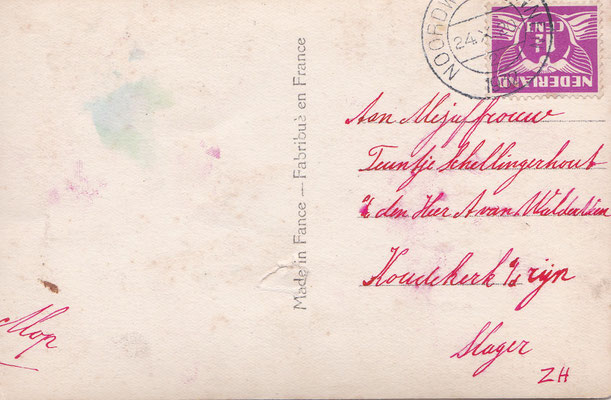 NOORDW
24
2½
CENT
NEDERLAND
Made in Fance — Fabribué en France
Aan Mejuffrouw
Teuntje Schellingerhout
p/a den Heer A van Walderveen
Koudekerk a/d rijn
Slager
ZH
Mop